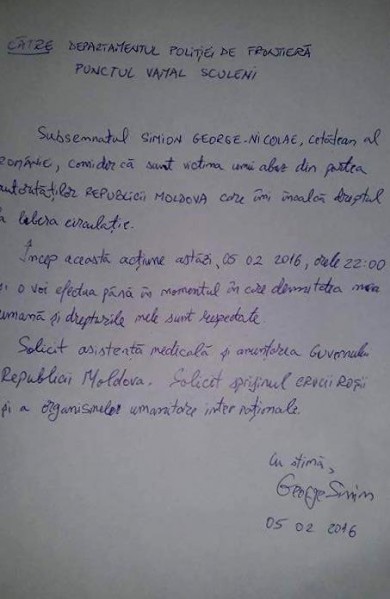 CĂTRE DEPARTAMENTUL POLIȚIEI DE FRONTIERĂ
PUNCTUL VAMAL SCULENI
Subsemnatul SIMION GEORGE-NICOLAE, cetățean al
ROMÂNIE, consider că sunt victima unui abuz din partea
autorităților REPUBLICII MOLDOVA care îmi încalcă dreptul
la libera circulație.
Încep această acțiune astăzi, 05 02 2016, orele 22:00
și o voi efectua până în momentul în care demnitatea mea
umană și drepturile mele sunt respectate.
Solicit asistență medicală și anunțarea Guvernului
Republicii Moldova. Solicit sprijinul CRUCII ROȘII
și a organismelor umanitare internaționale.
Cu stimă,
George Simion
05 02 2016